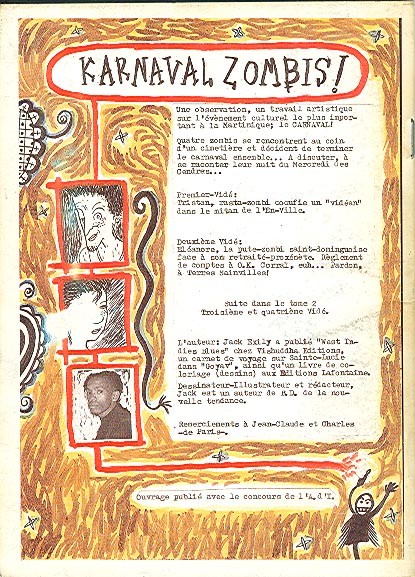 KARNAVAL ZOMBIS!
Une observation, un travail artistique
sur l'évènement culturel le plus impor-
tant à la Martinique; le CARNAVAL!
quatre zombis se rencontrent au coin
d'un cimetière et décident de terminer
le carnaval ensemble... A discuter, à
se raconter leur nuit du Mercredi des
Cendres...
Premier-Vidé:
Tristan, rasta-zombi cocufie un "vidéan"
dans le mitan de l'En-Ville.
Deuxième Vidé:
Eléanore, la pute-zombi saint-dominguaise
face à son retraité-proxénète. Règlement
de comptes à O.K. Corral, euh... Pardon,
à Terres Sainvilles!
Suite dans le tome 2
Troisième et quatrième Vidé.
L'auteur: Jack Exily a publié "West In-
dies Blues" chez Vishuddha Editions,
un carnet de voyage sur Sainte-Lucie
dans "Goyav", ainsi qu'un livre de co-
loriage (dessins) aux Editions Lafontaine.
Dessinateur-Illustrateur et rédacteur,
Jack est un auteur de B.D. de la nou-
velle tendance.
Remerciements à Jean-Claude et Charles
-de Paris-.
Ouvrage publié avec le concours de l'A.d'I.